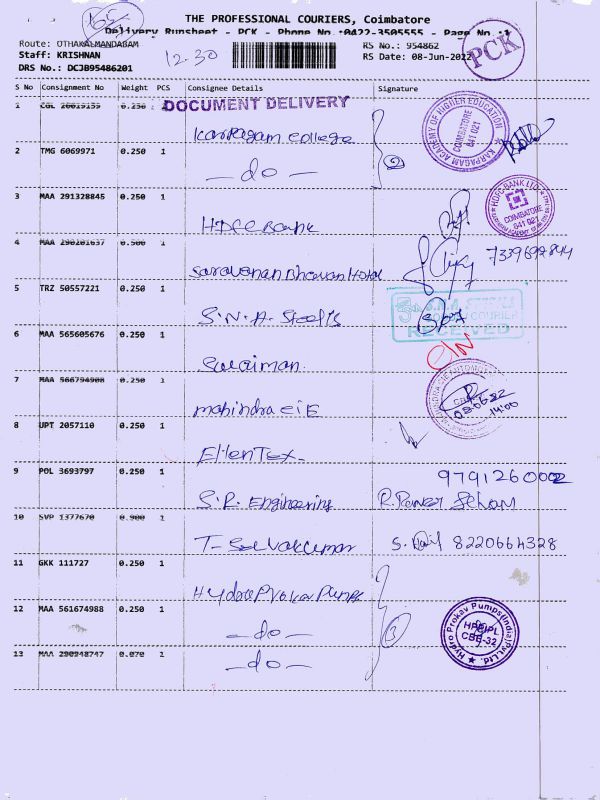 165
THE PROFESSIONAL COURIERS, Coimbatore
Delivery Runsheet - PCK - Phone No.:0422-3505555 - Page No.:1
Route: OTHAKALMANDAGAM
RS No.: 954862
Staff: KRISHNAN
12.30
RS Date: 08-Jun-2022
PCK
DRS No.: DCJB95486201
S No Consignment No Weight PCS Consignee Details Signature
1 CGL 20015159 0.250 1 DOCUMENT DELIVERY
Karpagam College
KARPAGAM ACADEMY OF HIGHER EDUCATION
COIMBATORE
641 021
2 TMG 6069971 0.250 1
— do —
2
3 MAA 291328845 0.250 1
HDFC Bank
HDFC BANK LTD.
COIMBATORE
641 021
4 MAA 290201637 0.500 1
Saravanan Bhavan Hotel
7339692844
5 TRZ 50557221 0.250 1
S.N.A. Steels
RECEIVED
6 MAA 565605676 0.250 1
Sulaiman
7 MAA 566794908 0.250 1
mahindra CIE
14:00
8 UPT 2057110 0.250 1
EllenTex
9 POL 3693797 0.250 1
S.R. Engineering
9791260002
10 SVP 1377670 0.900 1
T- Selvakumar
8220664328
11 GKK 111727 0.250 1
Hydro Prokav Pumps
12 MAA 561674988 0.250 1
— do —
3
Hydro Prokav Pumps(India)Pvt.Ltd.
HPPIPL
CBE-32
13 MAA 290948747 0.070 1
— do —